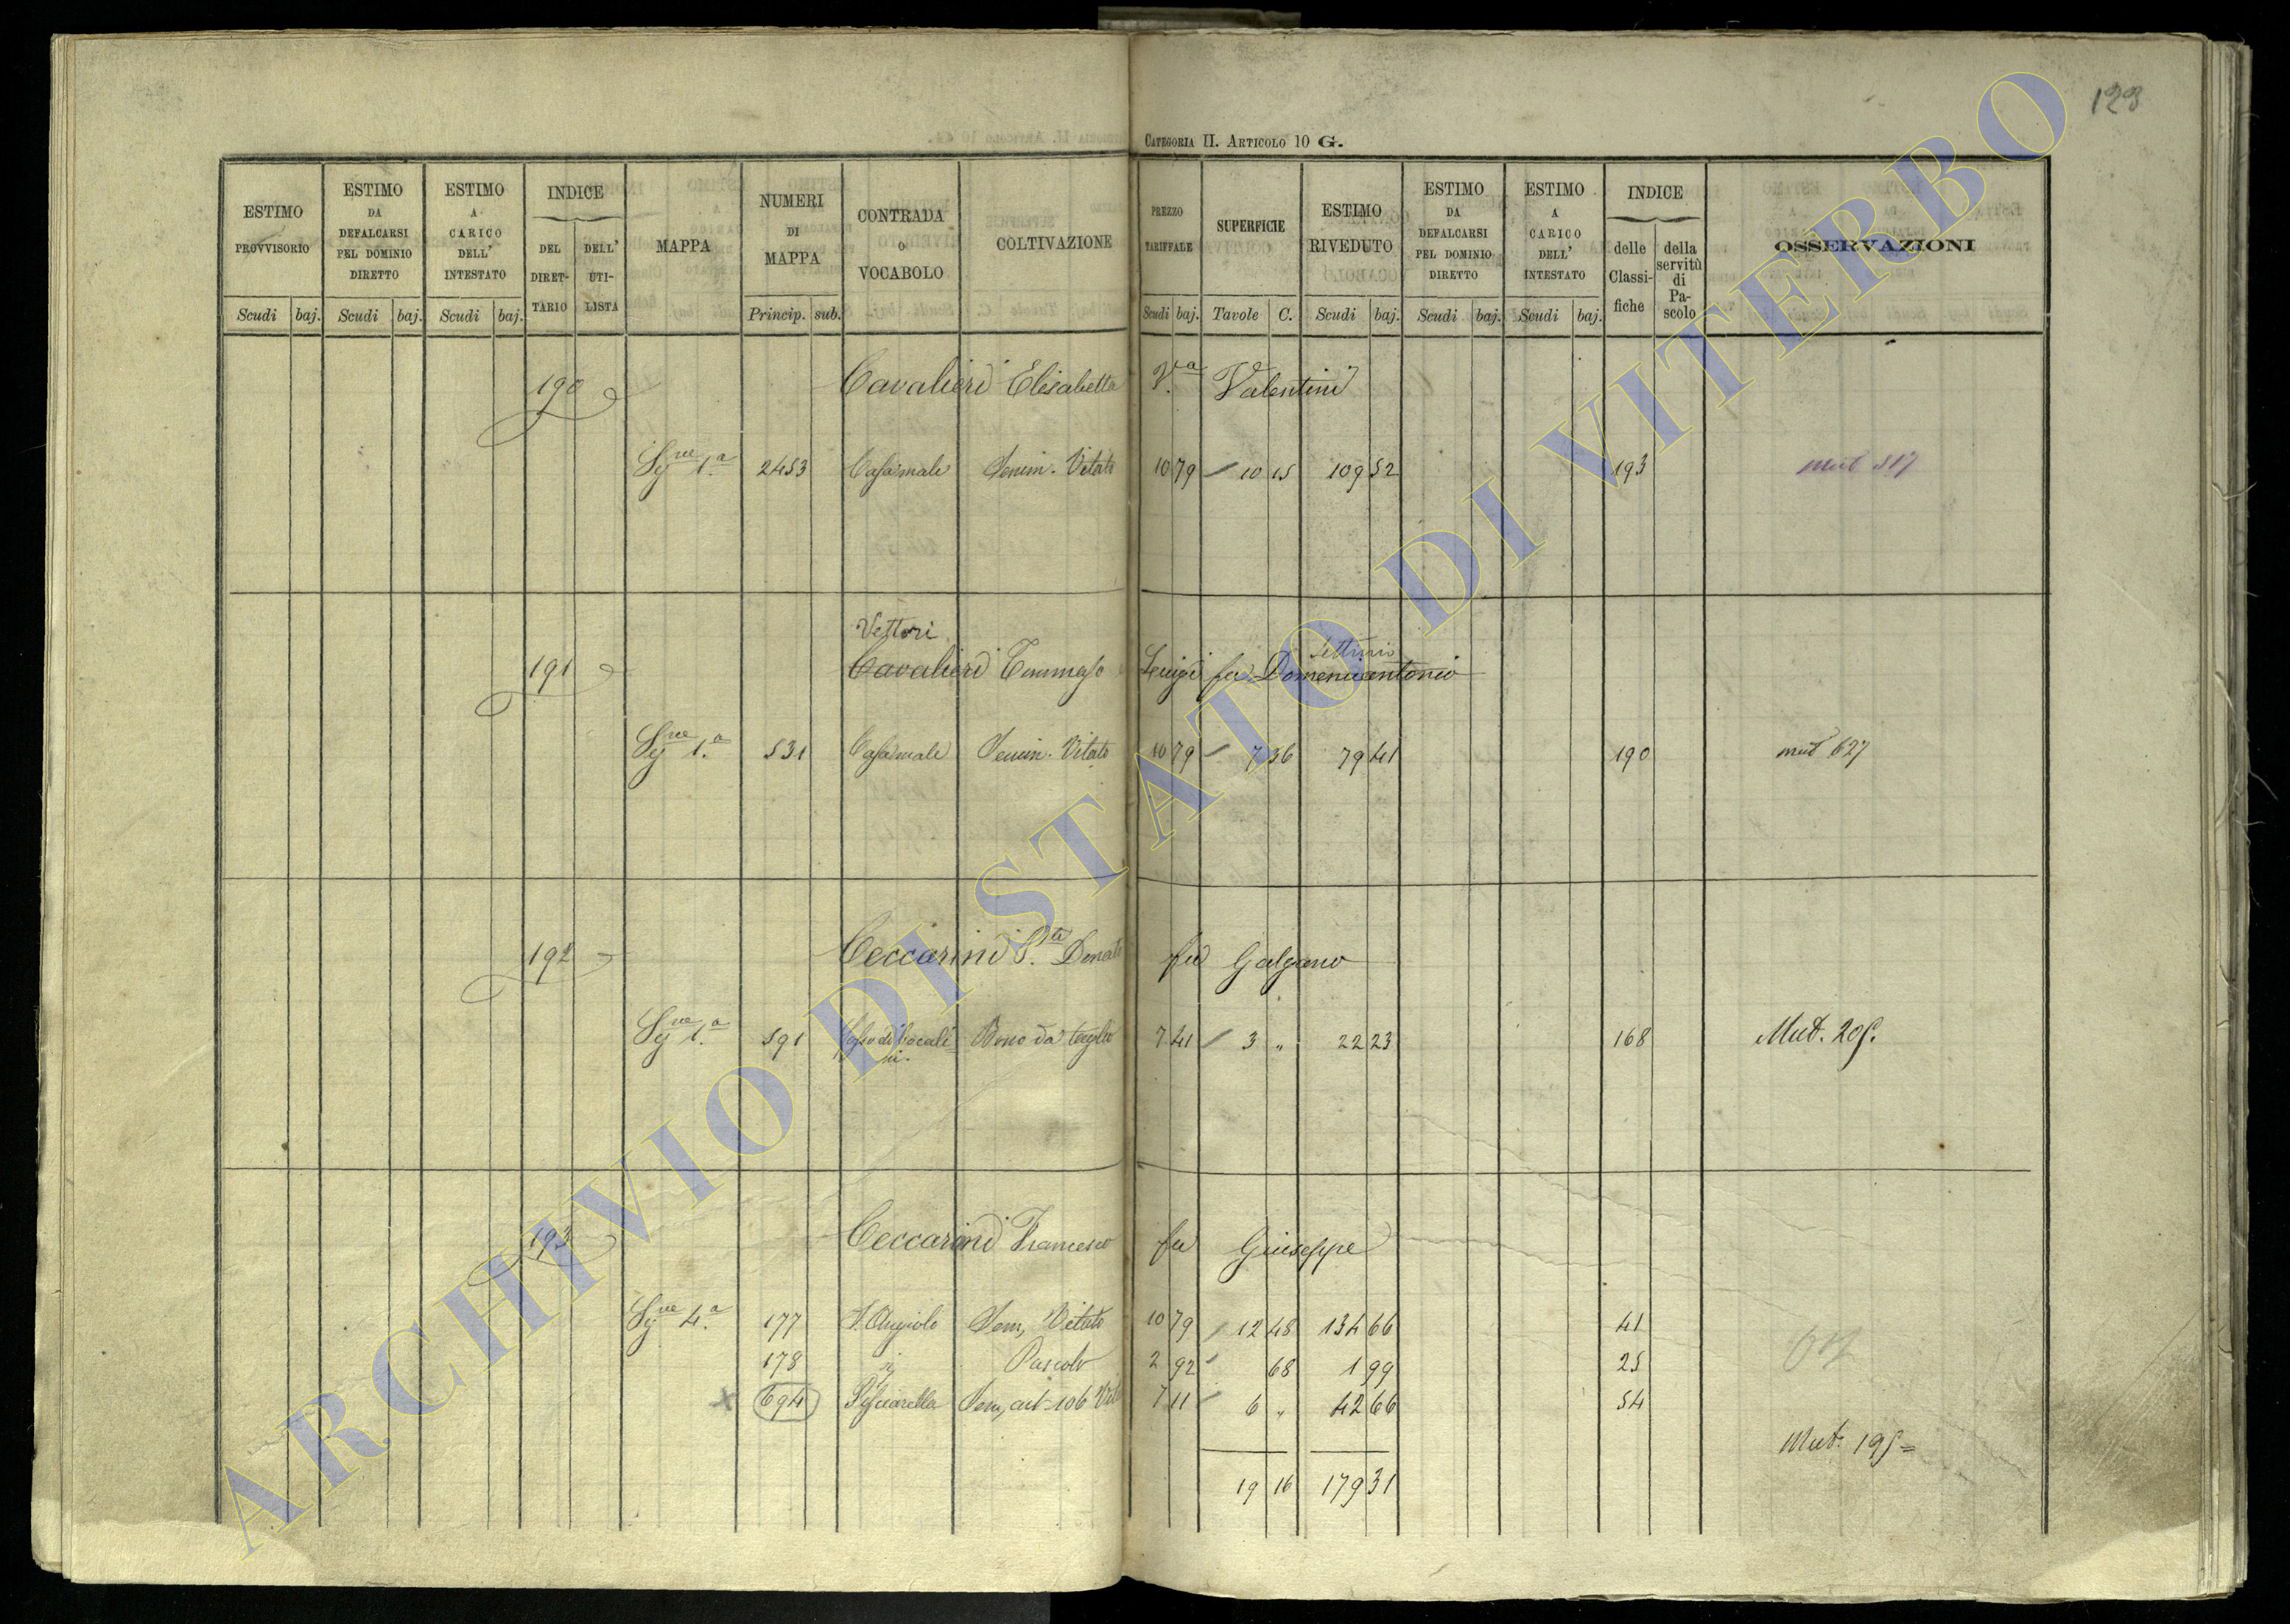 123
CATEGORIA II. ARTICOLO 10 G.
ESTIMO PROVVISORIO
ESTIMO DA DEFALCARSI PEL DOMINIO DIRETTO
ESTIMO A CARICO DELL' INTESTATO
INDICE
DEL DIRETTARIO
DELL' UTILISTA
MAPPA
NUMERI DI MAPPA
CONTRADA O VOCABOLO
COLTIVAZIONE
PREZZO TARIFFALE
SUPERFICIE
ESTIMO RIVEDUTO
ESTIMO DA DEFALCARSI PEL DOMINIO DIRETTO
ESTIMO A CARICO DELL' INTESTATO
INDICE
delle Classifiche
della servitù di Pascolo
OSSERVAZIONI
Scudi baj. Scudi baj. Scudi baj. Princip. sub. Scudi baj. Tavole C. Scudi baj. Scudi baj. Scudi baj.
190 Cavalieri Elisabetta Va Valentini
1.a 2453 Semin. Vitato 10 79 10 15 109 52 193 Mut 517
Vettori Settimio
191 Cavalieri Tommaso Luigi fu Domenicantonio
1.a 531 Semin. Vitato 10 79 7 36 79 41 190 mut 627
192 Ceccarini Donato fu Galgano
1.a 591 Bosco da taglio 7 41 3 " 22 23 168 Mut. 205.
193 Ceccarini Francesco fu Giuseppe
4.a 177 S. Angiolo Sem, Vitato 10 79 12 48 134 66 41
178 Pascolo 2 92 68 1 99 25
694 Sem, 7 11 6 " 42 66 54
Mut. 195=
19 16 179 31
ARCHIVIO DI STATO DI VITERBO